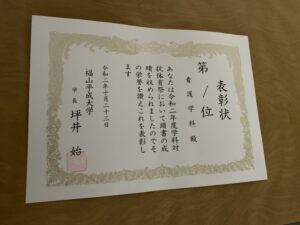 表彰状
第1位
看護学科殿
あなたは令和二年度学科対
抗体育祭において頭書の成
績を収められましたのでそ
の栄誉を讃えこれを表彰し
ます
令和二年十月二十三日
福山平成大学
学長 坪井 始